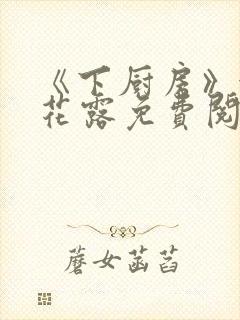 《下厨房》
花露免費閱
蘑女菡萏